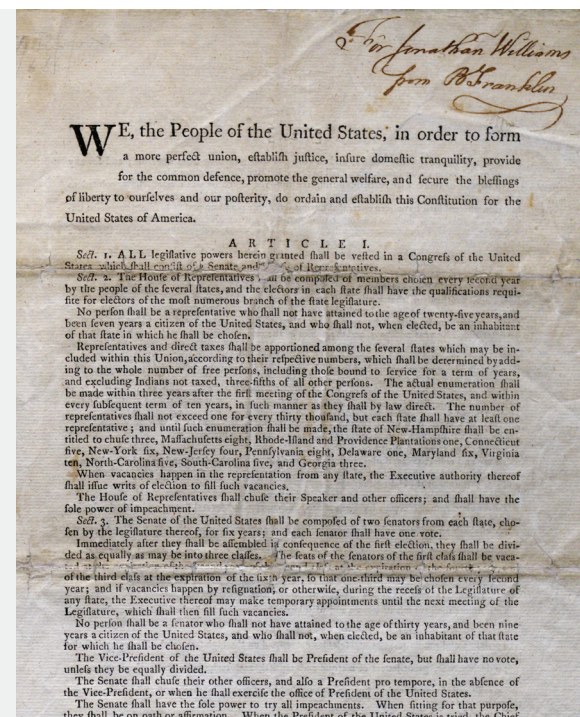 For Jonathan Williams
from B Franklin
WE, the People of the United States, in order to form
a more perfect union, eſtabliſh juſtice, inſure domeſtic tranquility, provide
for the common defence, promote the general welfare, and ſecure the bleſſings
of liberty to ourſelves and our poſterity, do ordain and eſtabliſh this Conſtitution for the
United States of America.
ARTICLE I.
Sect. 1. ALL legiſlative powers herein granted ſhall be veſted in a Congreſs of the United
States, which ſhall conſiſt of a Senate and of Repreſentatives.
Sect. 2. The Houſe of Repreſentatives be compoſed of members choſen every ſecond year
by the people of the ſeveral ſtates, and the electors in each ſtate ſhall have the qualifications requi-
ſite for electors of the moſt numerous branch of the ſtate legiſlature.
No perſon ſhall be a repreſentative who ſhall not have attained to the age of twenty-five years, and
been ſeven years a citizen of the United States, and who ſhall not, when elected, be an inhabitant
of that ſtate in which he ſhall be choſen.
Repreſentatives and direct taxes ſhall be apportioned among the ſeveral ſtates which may be in-
cluded within this Union, according to their reſpective numbers, which ſhall be determined by add-
ing to the whole number of free perſons, including thoſe bound to ſervice for a term of years,
and excluding Indians not taxed, three-fifths of all other perſons. The actual enumeration ſhall
be made within three years after the firſt meeting of the Congreſs of the United States, and within
every ſubſequent term of ten years, in ſuch manner as they ſhall by law direct. The number of
repreſentatives ſhall not exceed one for every thirty thouſand, but each ſtate ſhall have at leaſt one
repreſentative ; and until ſuch enumeration ſhall be made, the ſtate of New-Hampſhire ſhall be en-
titled to chuſe three, Maſſachuſetts eight, Rhode-Iſland and Providence Plantations one, Connecticut
five, New-York ſix, New-Jerſey four, Pennſylvania eight, Delaware one, Maryland ſix, Virginia
ten, North-Carolina five, South-Carolina five, and Georgia three.
When vacancies happen in the repreſentation from any ſtate, the Executive authority thereof
ſhall iſſue writs of election to fill ſuch vacancies.
The Houſe of Repreſentatives ſhall chuſe their Speaker and other officers; and ſhall have the
ſole power of impeachment.
Sect. 3. The Senate of the United States ſhall be compoſed of two ſenators from each ſtate, cho-
ſen by the legiſlature thereof, for ſix years; and each ſenator ſhall have one vote.
Immediately after they ſhall be aſſembled in conſequence of the firſt election, they ſhall be divi-
ded as equally as may be into three claſſes. The ſeats of the ſenators of the firſt claſs ſhall be vaca-
of the third claſs at the expiration of the ſixth year, ſo that one-third may be choſen every ſecond
year; and if vacancies happen by reſignation, or otherwiſe, during the receſs of the Legiſlature of
any ſtate, the Executive thereof may make temporary appointments until the next meeting of the
Legiſlature, which ſhall then fill ſuch vacancies.
No perſon ſhall be a ſenator who ſhall not have attained to the age of thirty years, and been nine
years a citizen of the United States, and who ſhall not, when elected, be an inhabitant of that ſtate
for which he ſhall be choſen.
The Vice-Preſident of the United States ſhall be Preſident of the ſenate, but ſhall have no vote,
unleſs they be equally divided.
The Senate ſhall chuſe their other officers, and alſo a Preſident pro tempore, in the abſence of
the Vice-Preſident, or when he ſhall exerciſe the office of Preſident of the United States.
The Senate ſhall have the ſole power to try all impeachments. When ſitting for that purpoſe,
they ſhall be on oath or affirmation. When the Preſident of the United States is tried, the Chief